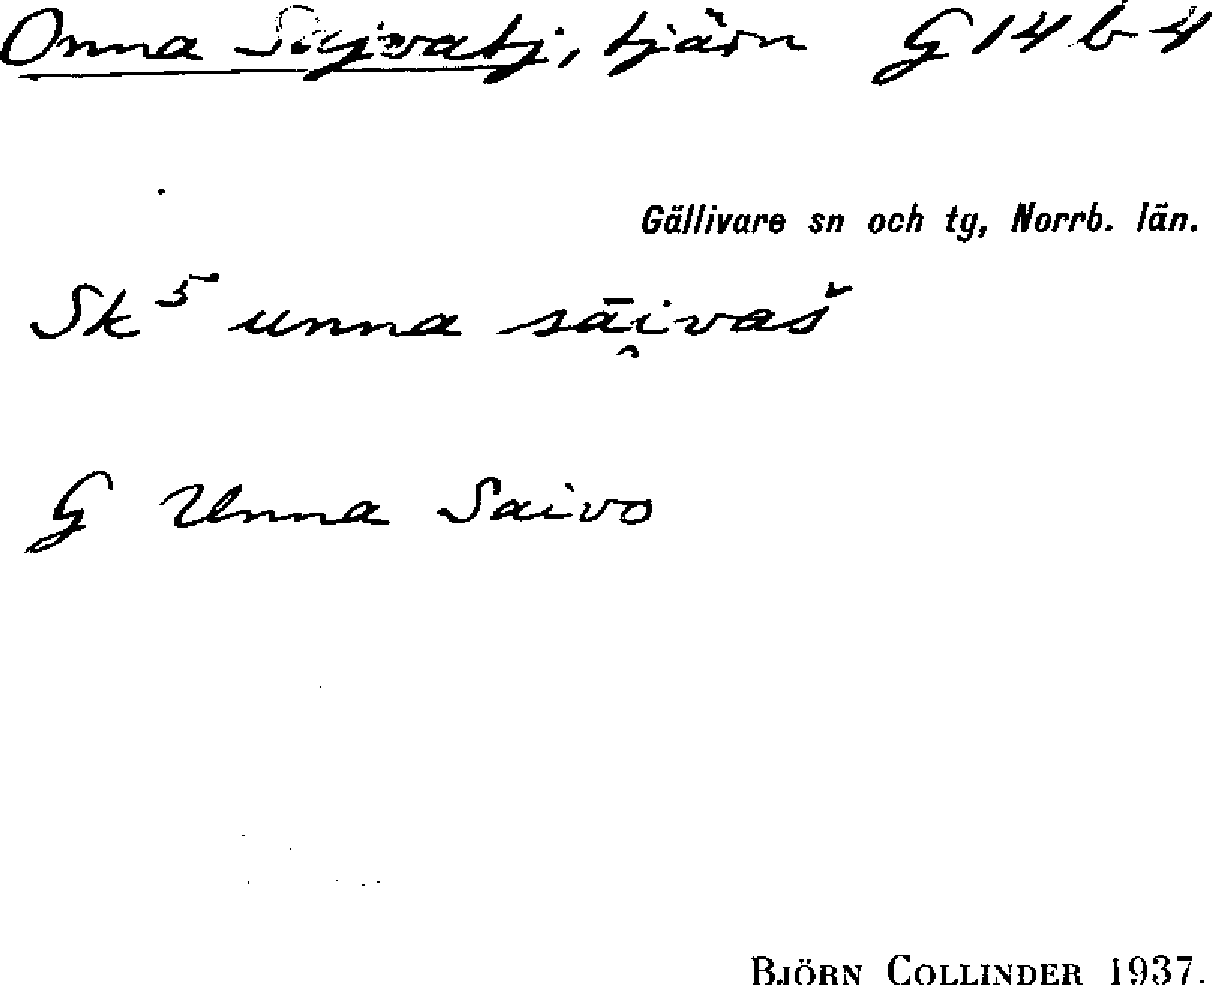 Onna Sajvatj, tjärn G 14 b 4
Gällivare sn och tg, Norrb. län.
Sk 5 unna sāi̯vaš
G Unna Saivo
BJÖRN COLLINDER 1937.